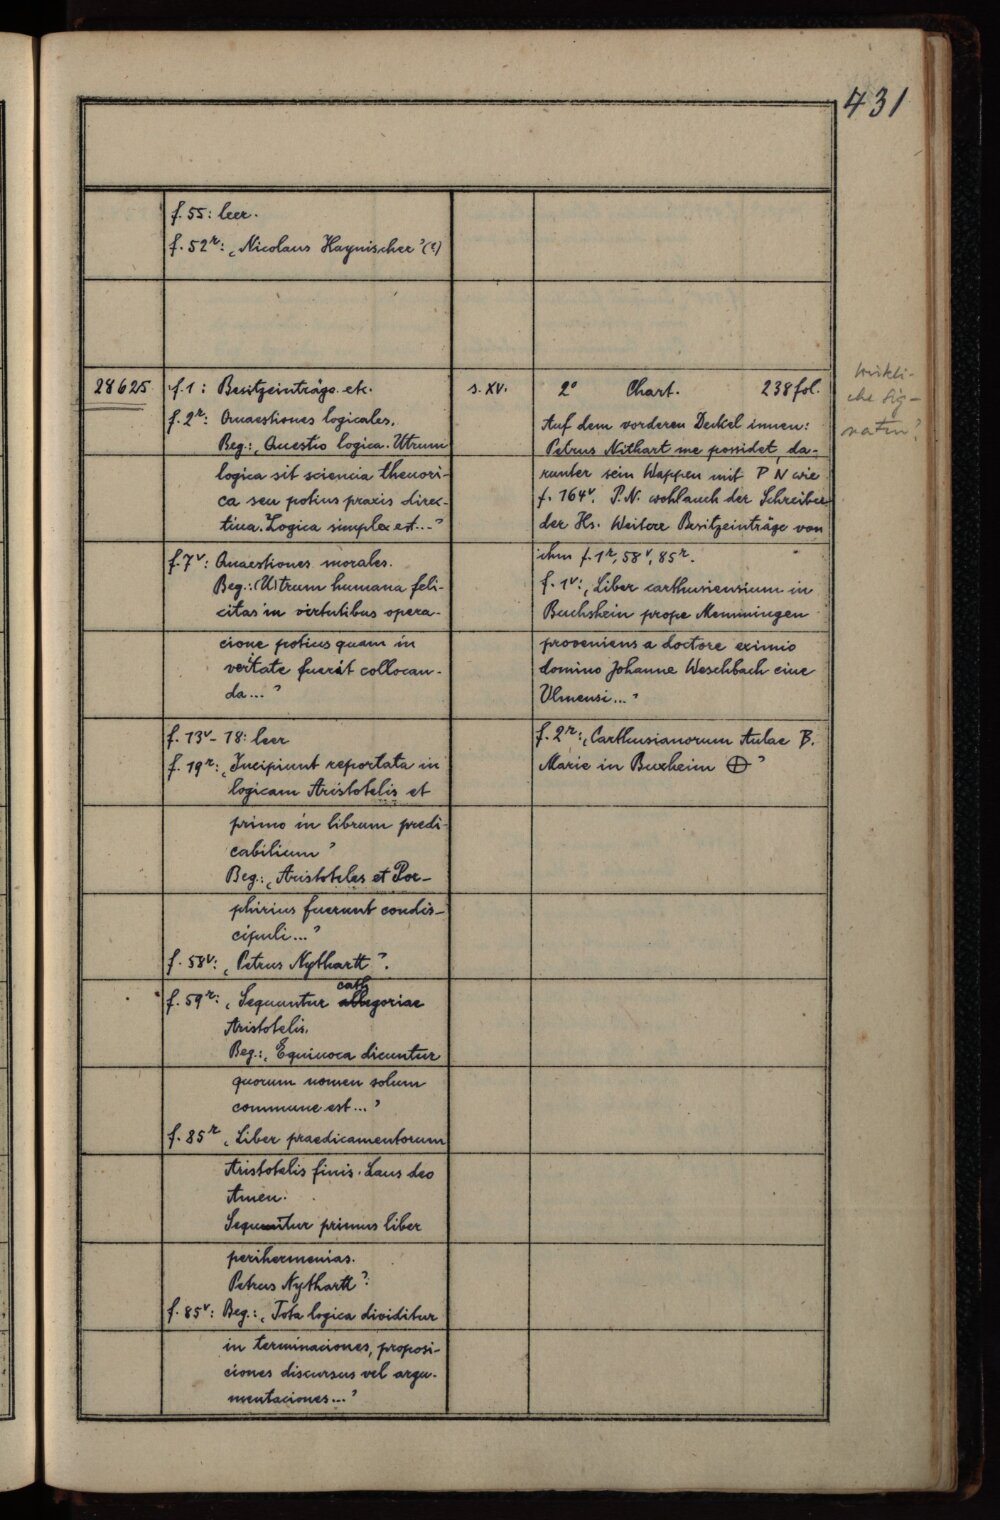 431
f. 55: leer.
f. 52r: „Nicolaus Haynischer" (?)
28625
f. 1: Besitzeinträge etc.
f. 2r: Quaestiones logicales.
Beg.: „Questio logica. Utrum
logica sit sciencia theuori-
ca seu potius praxis direc-
tiua. Logica simplex est..."
f. 7v: Quaestiones morales.
Beg.: (U)trum humana feli-
citas in virtutibus opera-
cione potius quam in
veritate fuerit collocan-
da..."
f. 13v-18: leer
f. 19r: „Incipiunt reportata in
logicam Aristotelis et
primo in librum predi-
cabilium"
Beg.: „Aristoteles et Por-
phirius fuerunt condis-
cipuli..."
f. 58v: „Petrus Nythartt".
f. 59r: „Sequuntur cathegoriae
Aristotelis.
Beg.: „Equiuoca dicuntur
quorum nomen solum
commune est..."
f. 85r „Liber praedicamentorum
Aristotelis finis. Laus deo
Amen.
Sequntur primus liber
perihermenias.
Petrus Nythartt".
f. 85v: Beg.: „Tota logica dividitur
in terminaciones, proposi-
ciones discursus vel argu-
mentaciones..."
s. XV.
2° Chart. 238 fol.
Auf dem vorderen Deckel innen:
Petrus Nithart me possidet, da-
runter sein Wappen mit P N wie
f. 164v. P.N. wohl auch der Schreiber
der Hs. Weitere Besitzeinträge von
ihm f. 1r, 58v, 85r.
f. 1v: „Liber carthusiensium in
Buchshein prope Memmingen
proveniens a doctore eximio
domino Johanne Weschbach cive
Ulmensi..."
f. 2r: „Carthusianorum Aulae B.
Marie in Buxheim ⊕"
Wirkli-
che Sig-
natur?